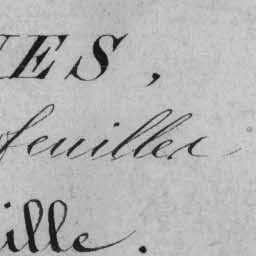 NES,
feuilles
ille.